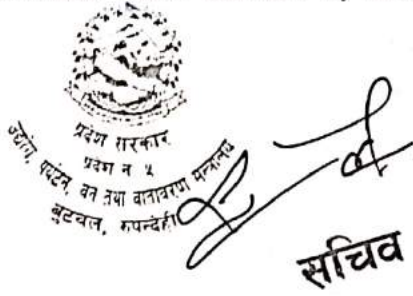 प्रदेश सरकार
प्रदेश न ५
उद्योग, पर्यटन, वन तथा वातावरण मन्त्रालय
बुटवल, रुपन्देही
सचिव